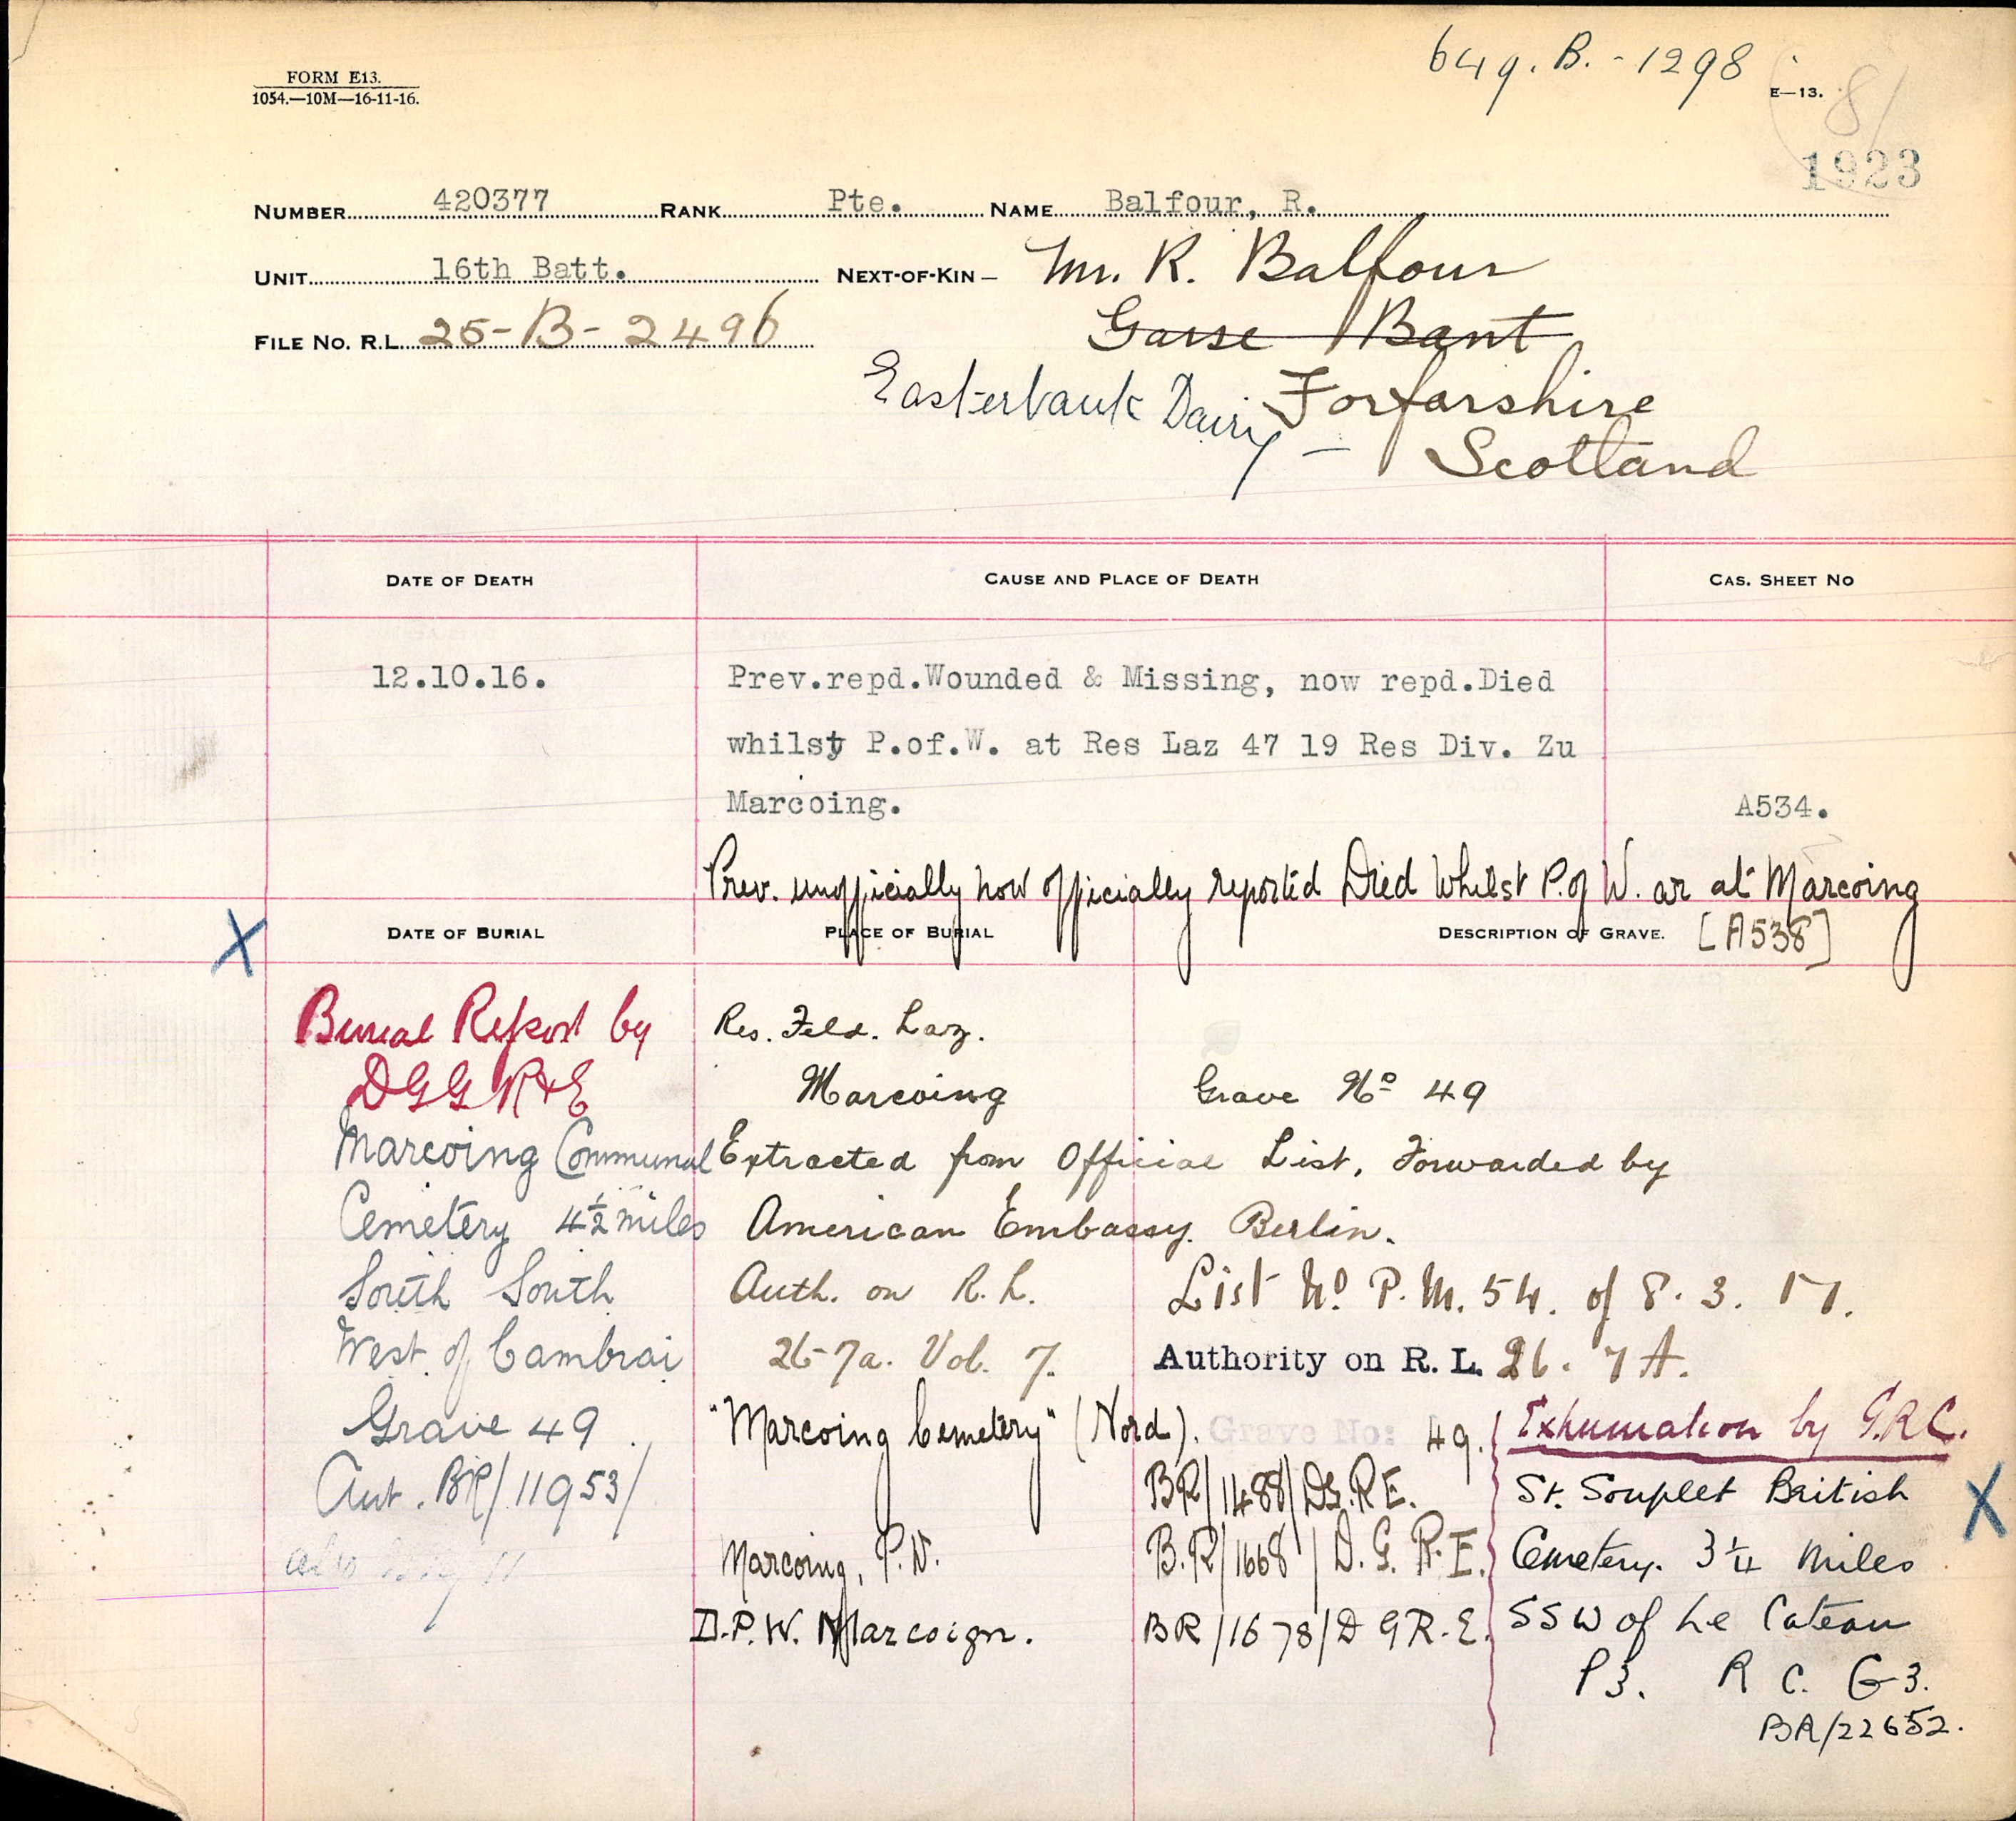 649. B. - 1298
FORM E13.
1054.—10M—16-11-16.
E—13.
8/
1923
NUMBER 420377 RANK Pte. NAME Balfour, R.
UNIT 16th Batt. NEXT-OF-KIN – Mr. R. Balfour
FILE No. R.L. 25-B-2496
Easterbank Dairy – Forfarshire
Scotland
DATE OF DEATH CAUSE AND PLACE OF DEATH CAS. SHEET NO
12.10.16. Prev.repd.Wounded & Missing, now repd.Died
whilst P.of.W. at Res Laz 47 19 Res Div. Zu
Marcoing. A534.
Prev. unofficially now officially reported Died Whilst P. of W. at Marcoing
X DATE OF BURIAL PLACE OF BURIAL DESCRIPTION OF GRAVE. [A538]
Burial Report by
DGGR&E
Marcoing Communal
Cemetery 4½ miles
South South
West of Cambrai
Grave 49
Aut. BR/11953/
also
Res. Feld. Laz.
Marcoing Grave No 49
Extracted from Official List, Forwarded by
American Embassy. Berlin.
Auth. on R.L. List No. P.M. 54. of 8. 3. 17.
26-7a. Vol. 7. Authority on R. L. 26. 7A.
"Marcoing Cemetery" (Nord). Grave No: 49.
BR/1488/DG.RE.
Marcoing, P.N. B.R/1668/D.G.R.E.
D.P.W. Marcoign. BR/1678/D GR.E.
Exhumation by G.R.C.
St. Souplet British X
Cemetery. 3¼ Miles
SSW of Le Cateau
P3. R C. G3.
BR/22652.